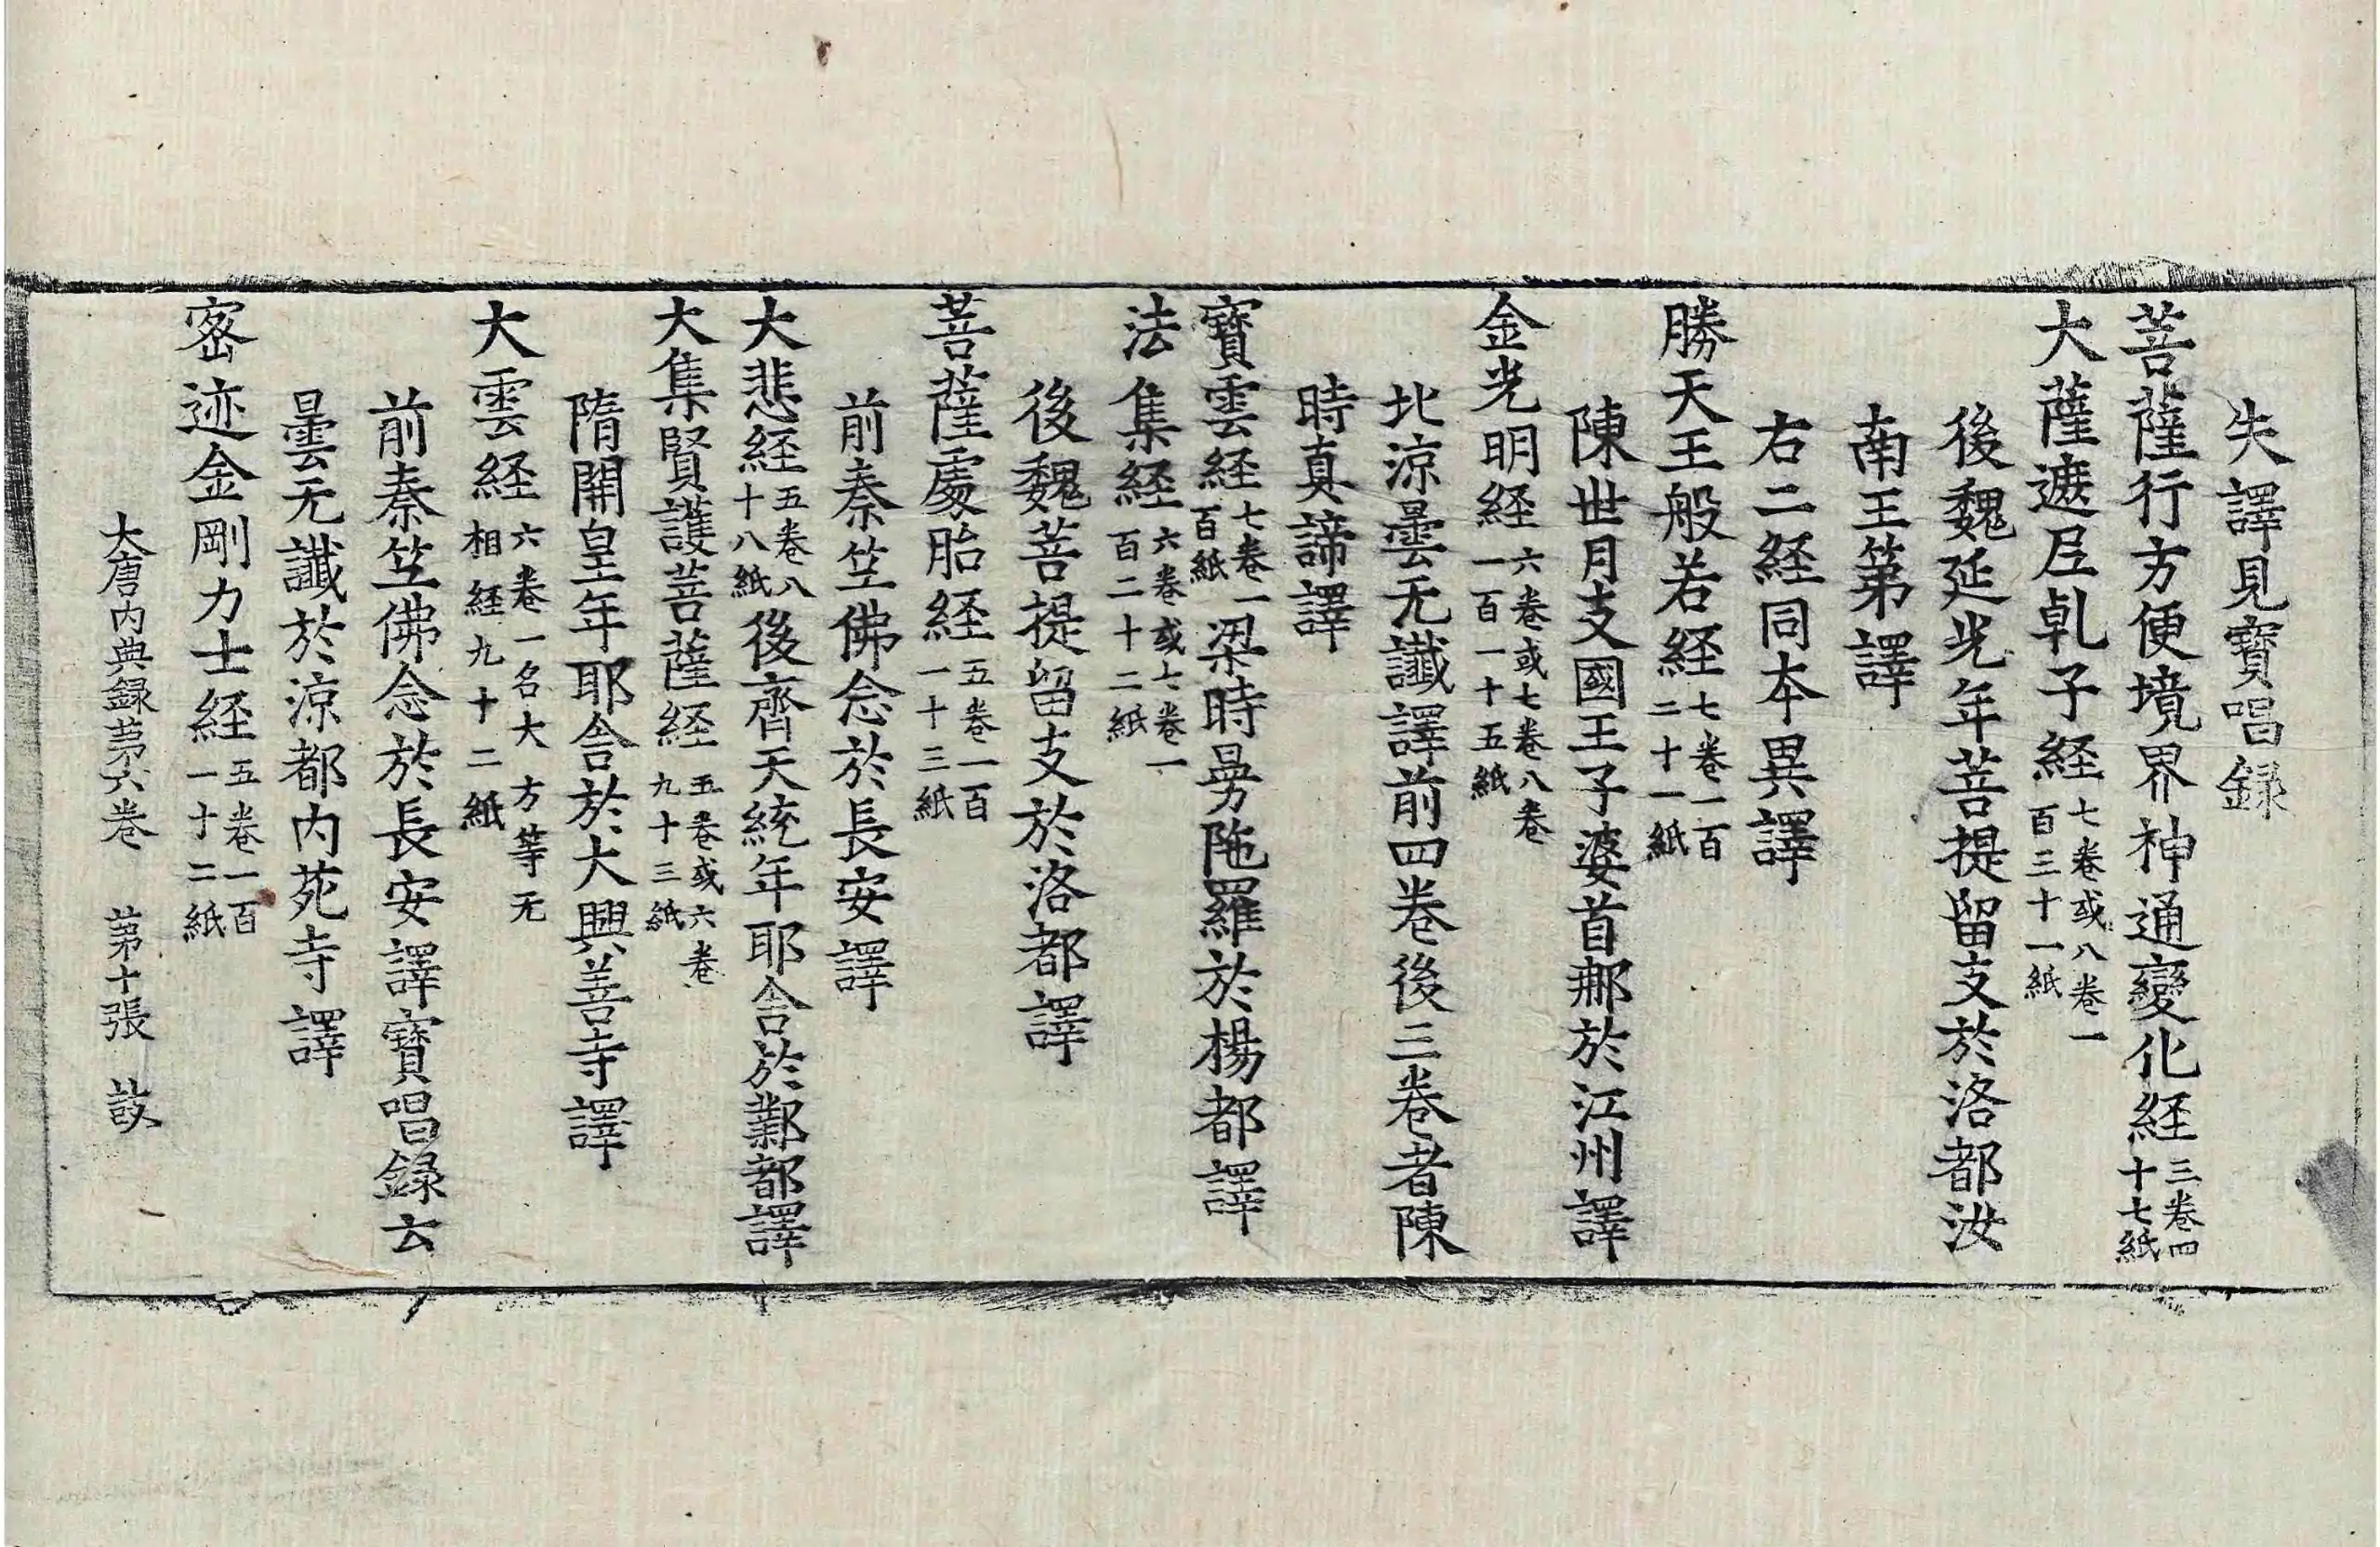 失譯見寶唱録
菩薩行方便境界神通變化経三卷四十七紙
大薩遮尼乹子経七卷或八卷一百三十一紙
後魏延光年菩提留支於洛都汝
南王第譯
右二経同本異譯
勝天王般若経七卷一百二十一紙
陳世月支國王子婆首那於江州譯
金光明経六卷或七卷八卷一百一十五紙
北涼曇无讖譯前四卷後三卷者陳
時真諦譯
寶雲経七卷一百紙梁時曼陁羅於楊都譯
法集経六卷或七卷一百二十二紙
後魏菩提留支於洛都譯
菩薩處胎経五卷一百一十三紙
前秦竺佛念於長安譯
大悲経五卷八十八紙後齊天統年耶舍於鄴都譯
大集賢護菩薩経五卷或六卷九十三紙
隋開皇年耶舍於大興善寺譯
大雲経六卷一名大方等无相経九十二紙
前秦竺佛念於長安譯寶唱録云
曇无讖於涼都内苑寺譯
密迹金剛力士経五卷一百一十二紙
大唐内典録苐六卷 苐十張 㪅